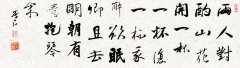 兩人對
酌山花
開一杯
一杯復
一杯我
醉欲眠
卿且去
明朝有
意抱琴
來